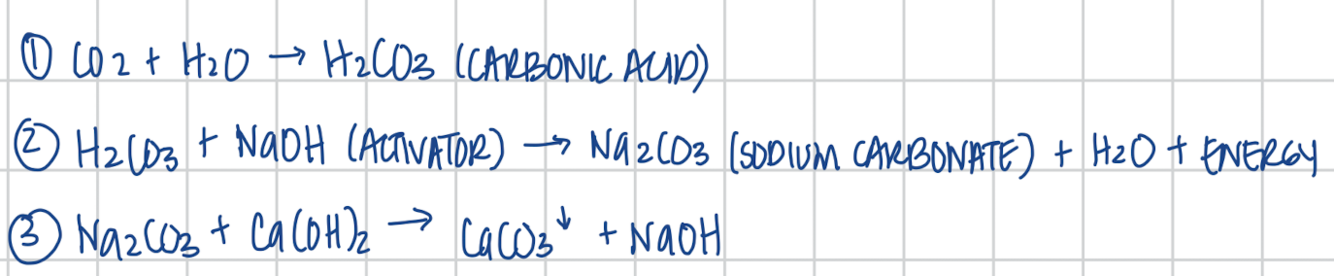 ① CO2 + H2O → H2CO3 (CARBONIC ACID)
② H2CO3 + NaOH (ACTIVATOR) → Na2CO3 (SODIUM CARBONATE) + H2O + ENERGY
③ Na2CO3 + Ca(OH)2 → CaCO3↓ + NaOH